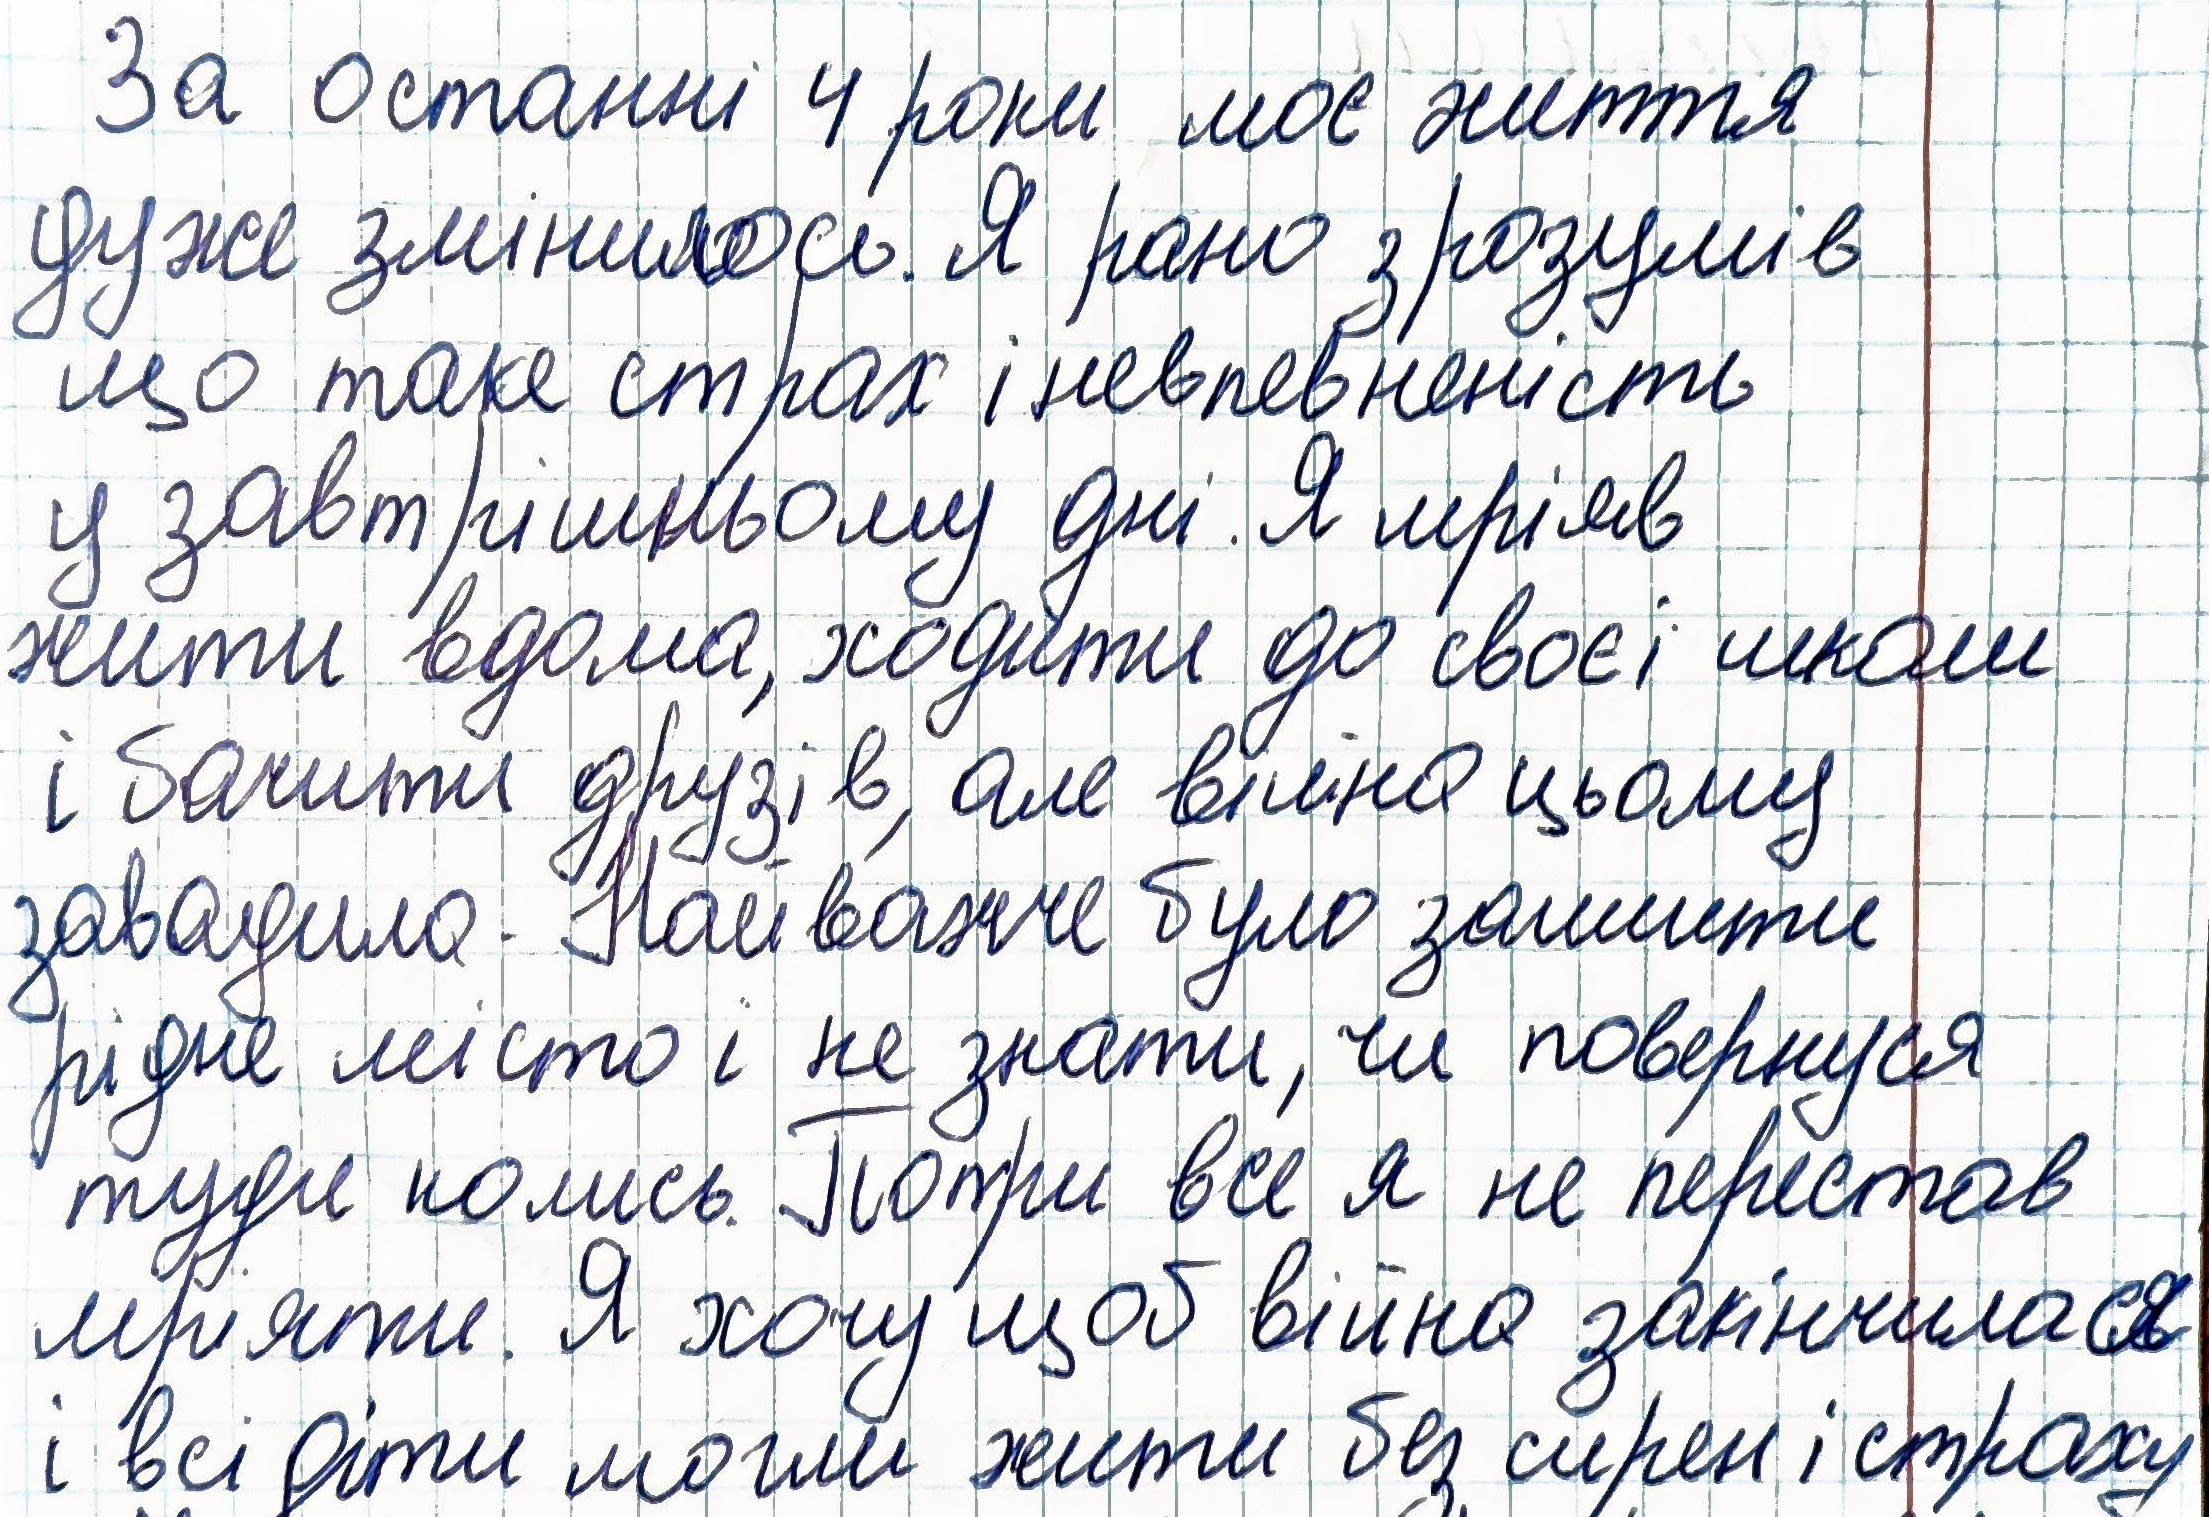 За останні 4 роки моє життя
дуже змінилось. Я рано зрозумів
що таке страх і невпевненість
у завтрішньому дні. Я мріяв
жити вдома, ходити до своєї школи
і бачити друзів, але війна цьому
завадила. Найважче було залишити
рідне місто і не знати, чи повернуся
туди колись. Попри все я не перестав
мріяти. Я хочу щоб війна закінчилася
і всі діти могли жити без сирен і страху